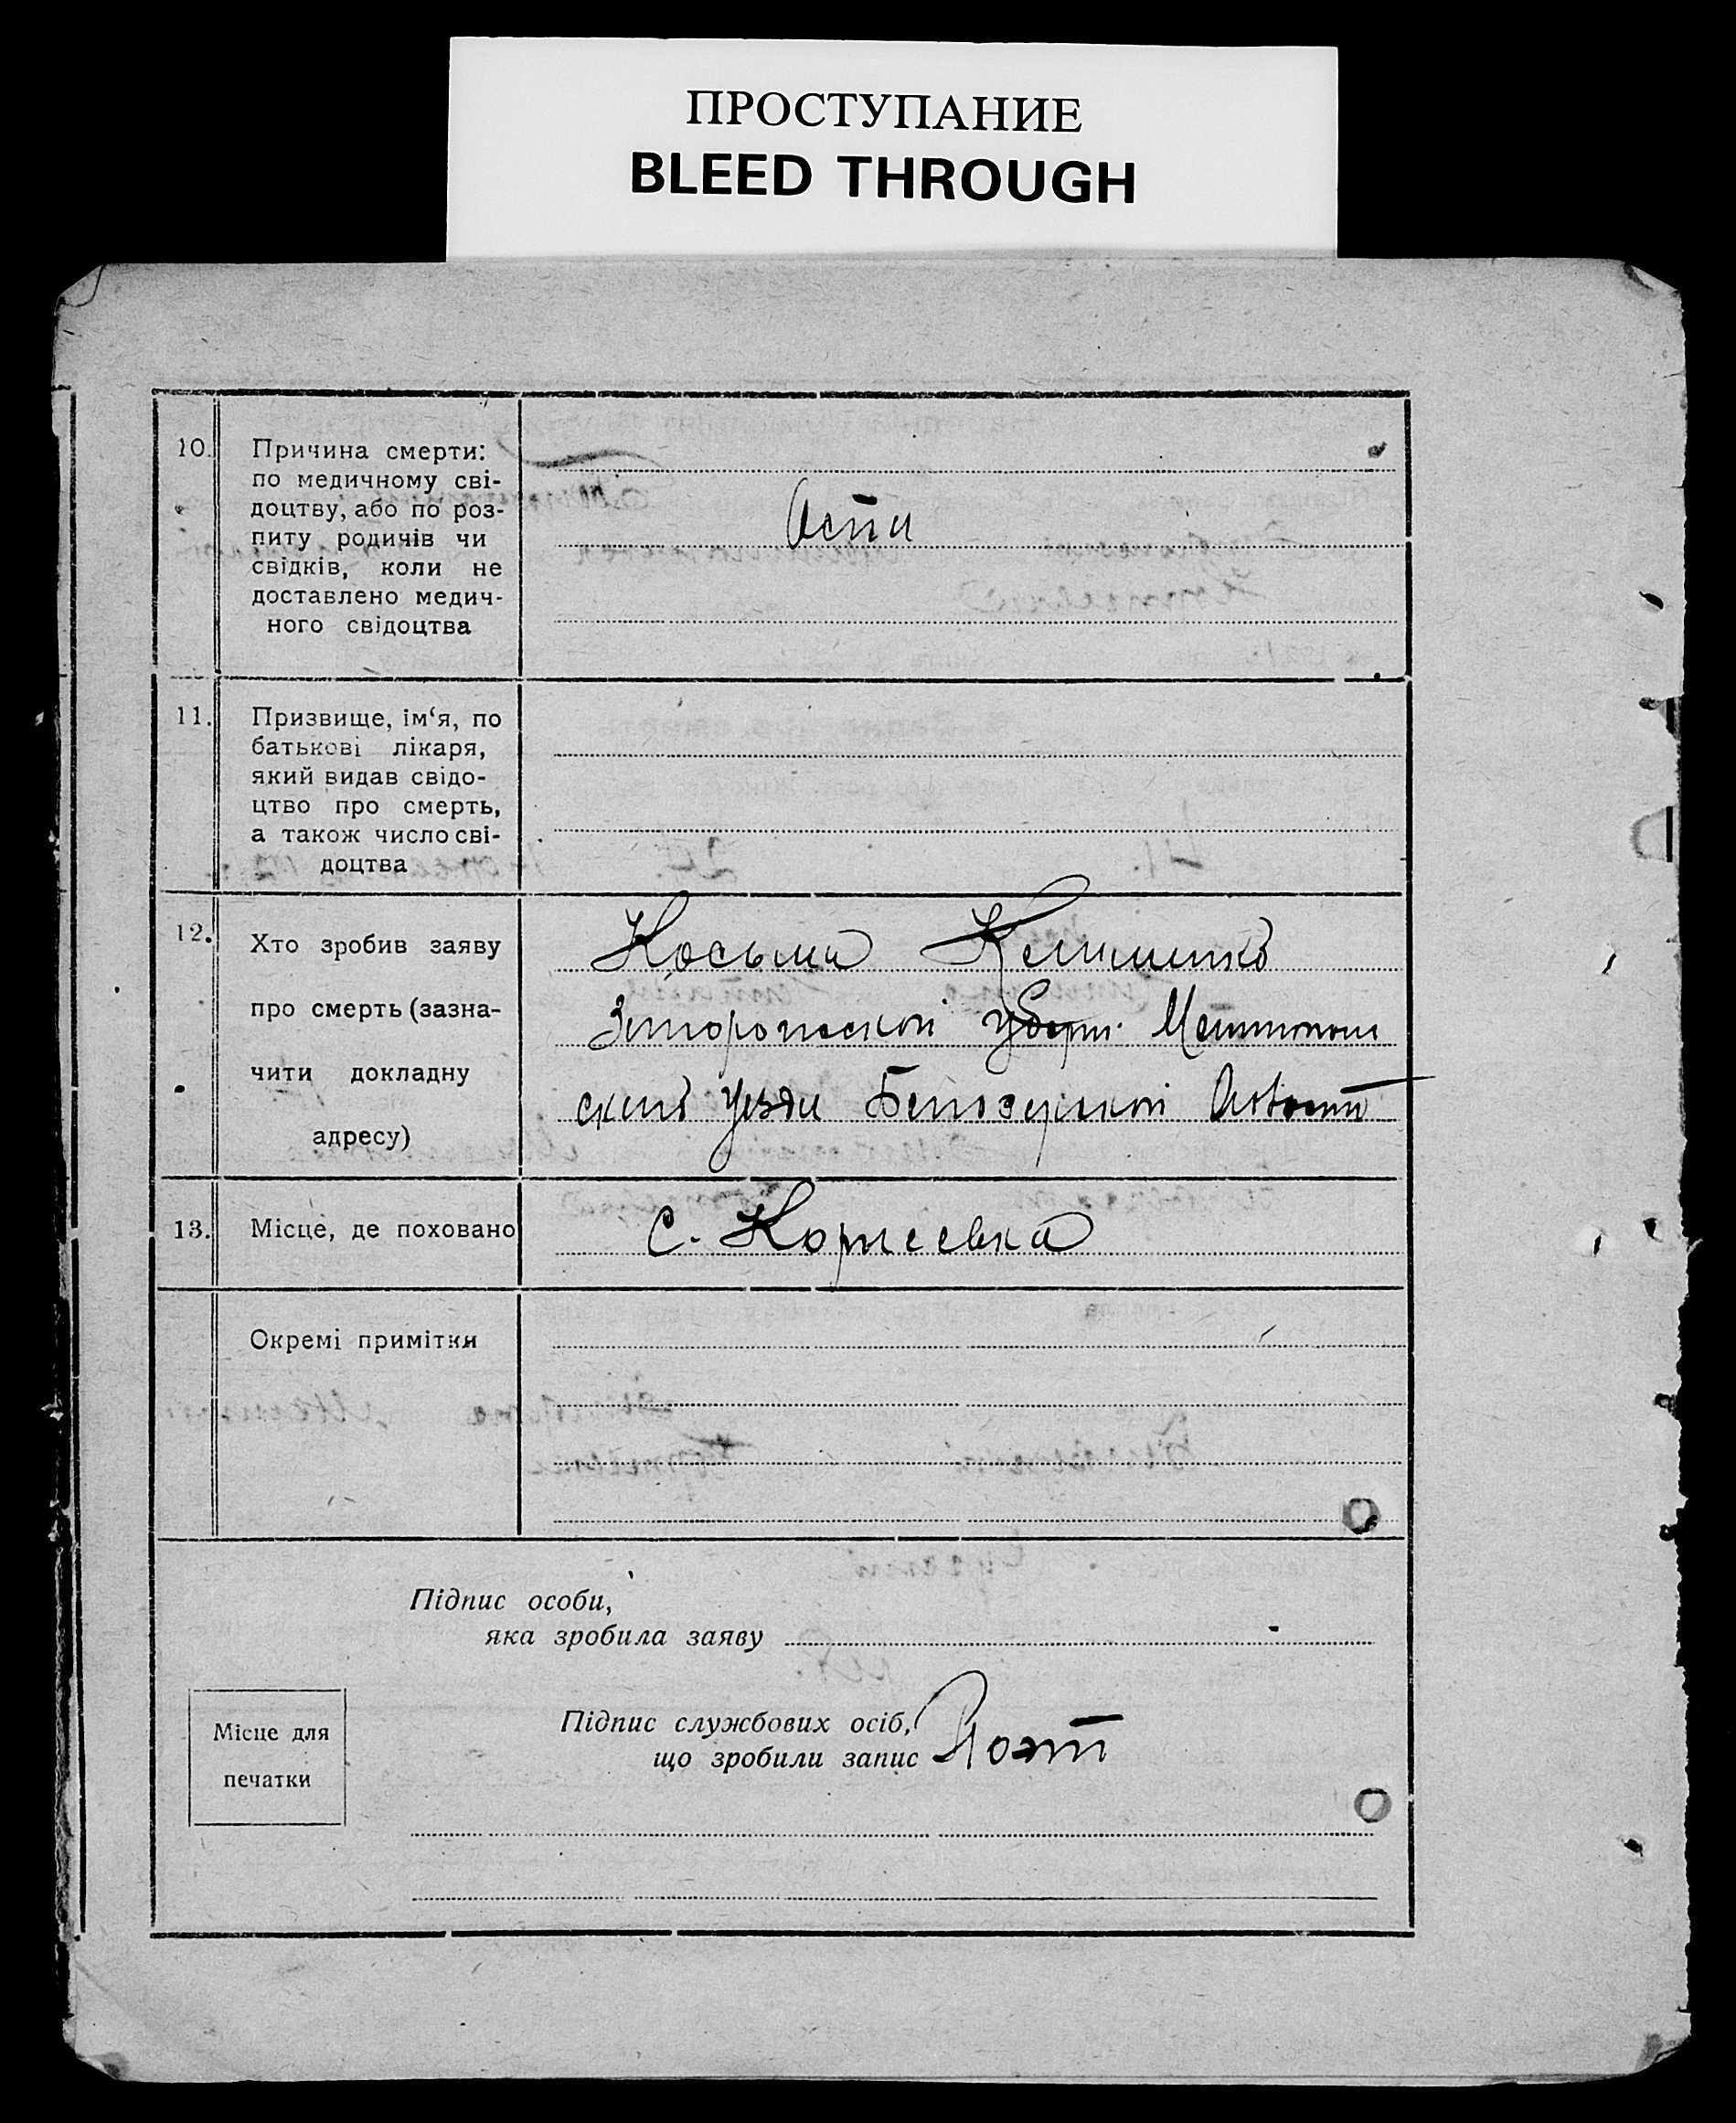 ПРОСТУПАНИЕ
BLEED THROUGH
10. Причина смерти:
по медичному сві-
доцтву, або по роз-
питу родичів чи
свідків, коли не
доставлено медич-
ного свідоцтва
Оспа
11. Призвище, ім‘я, по
батькові лікаря,
який видав свідо-
цтво про смерть,
а також число сві-
доцтва
12. Хто зробив заяву
про смерть (зазна-
чити докладну
адресу)
Косьма
Запорожской Губерн. Мелитополь
ского уезда Белозерской
13. Місце, де поховано
С. Корнеевка
Окремі примітки
Підпис особи,
яка зробила заяву
Місце для
печатки
Підпис службових осіб,
що зробили запис